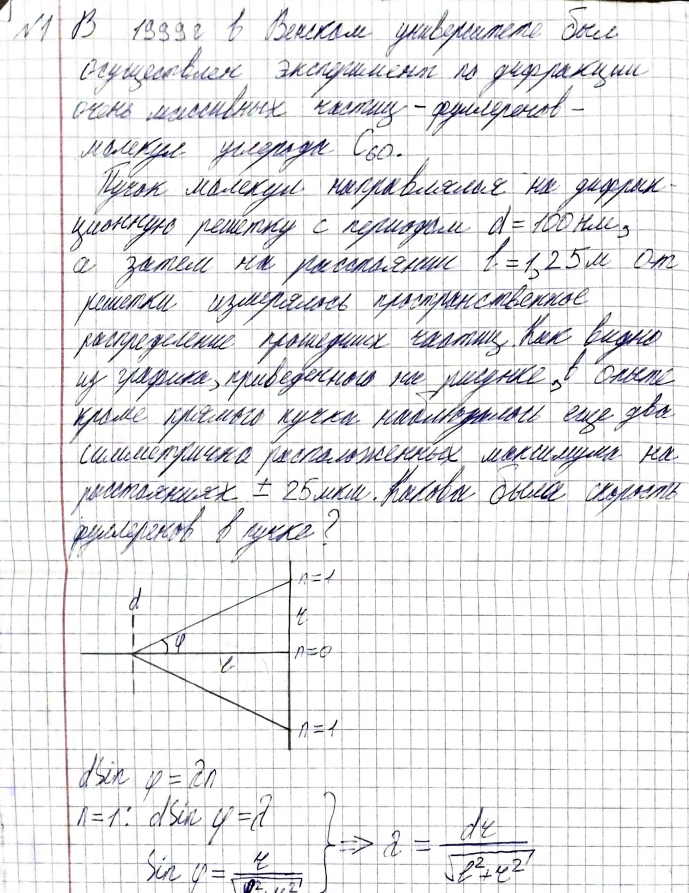 №1 В 1999г в Венском университете был
осуществлен эксперимент по дифракции
очень массивных частиц - фуллеренов -
молекул углерода C₆₀.
Пучок молекул направлялся на дифрак-
ционную решетку с периодом d = 100 нм,
а затем на расстоянии l = 1,25 м от
решетки измерялось пространственное
распределение прошедших частиц. Как видно
из графика, приведенного на рисунке, в опыте
кроме прямого пучка наблюдались еще два
симметрично расположенных максимума на
расстояниях ± 25 мкм. Какова была скорость
фуллеренов в пучке?
n=1
d
r
φ
l
n=0
n=1
dsin φ = λn
n=1: dsin φ = λ
sin φ = r/√(l²+r²) } => λ = dr/√(l²+r²)